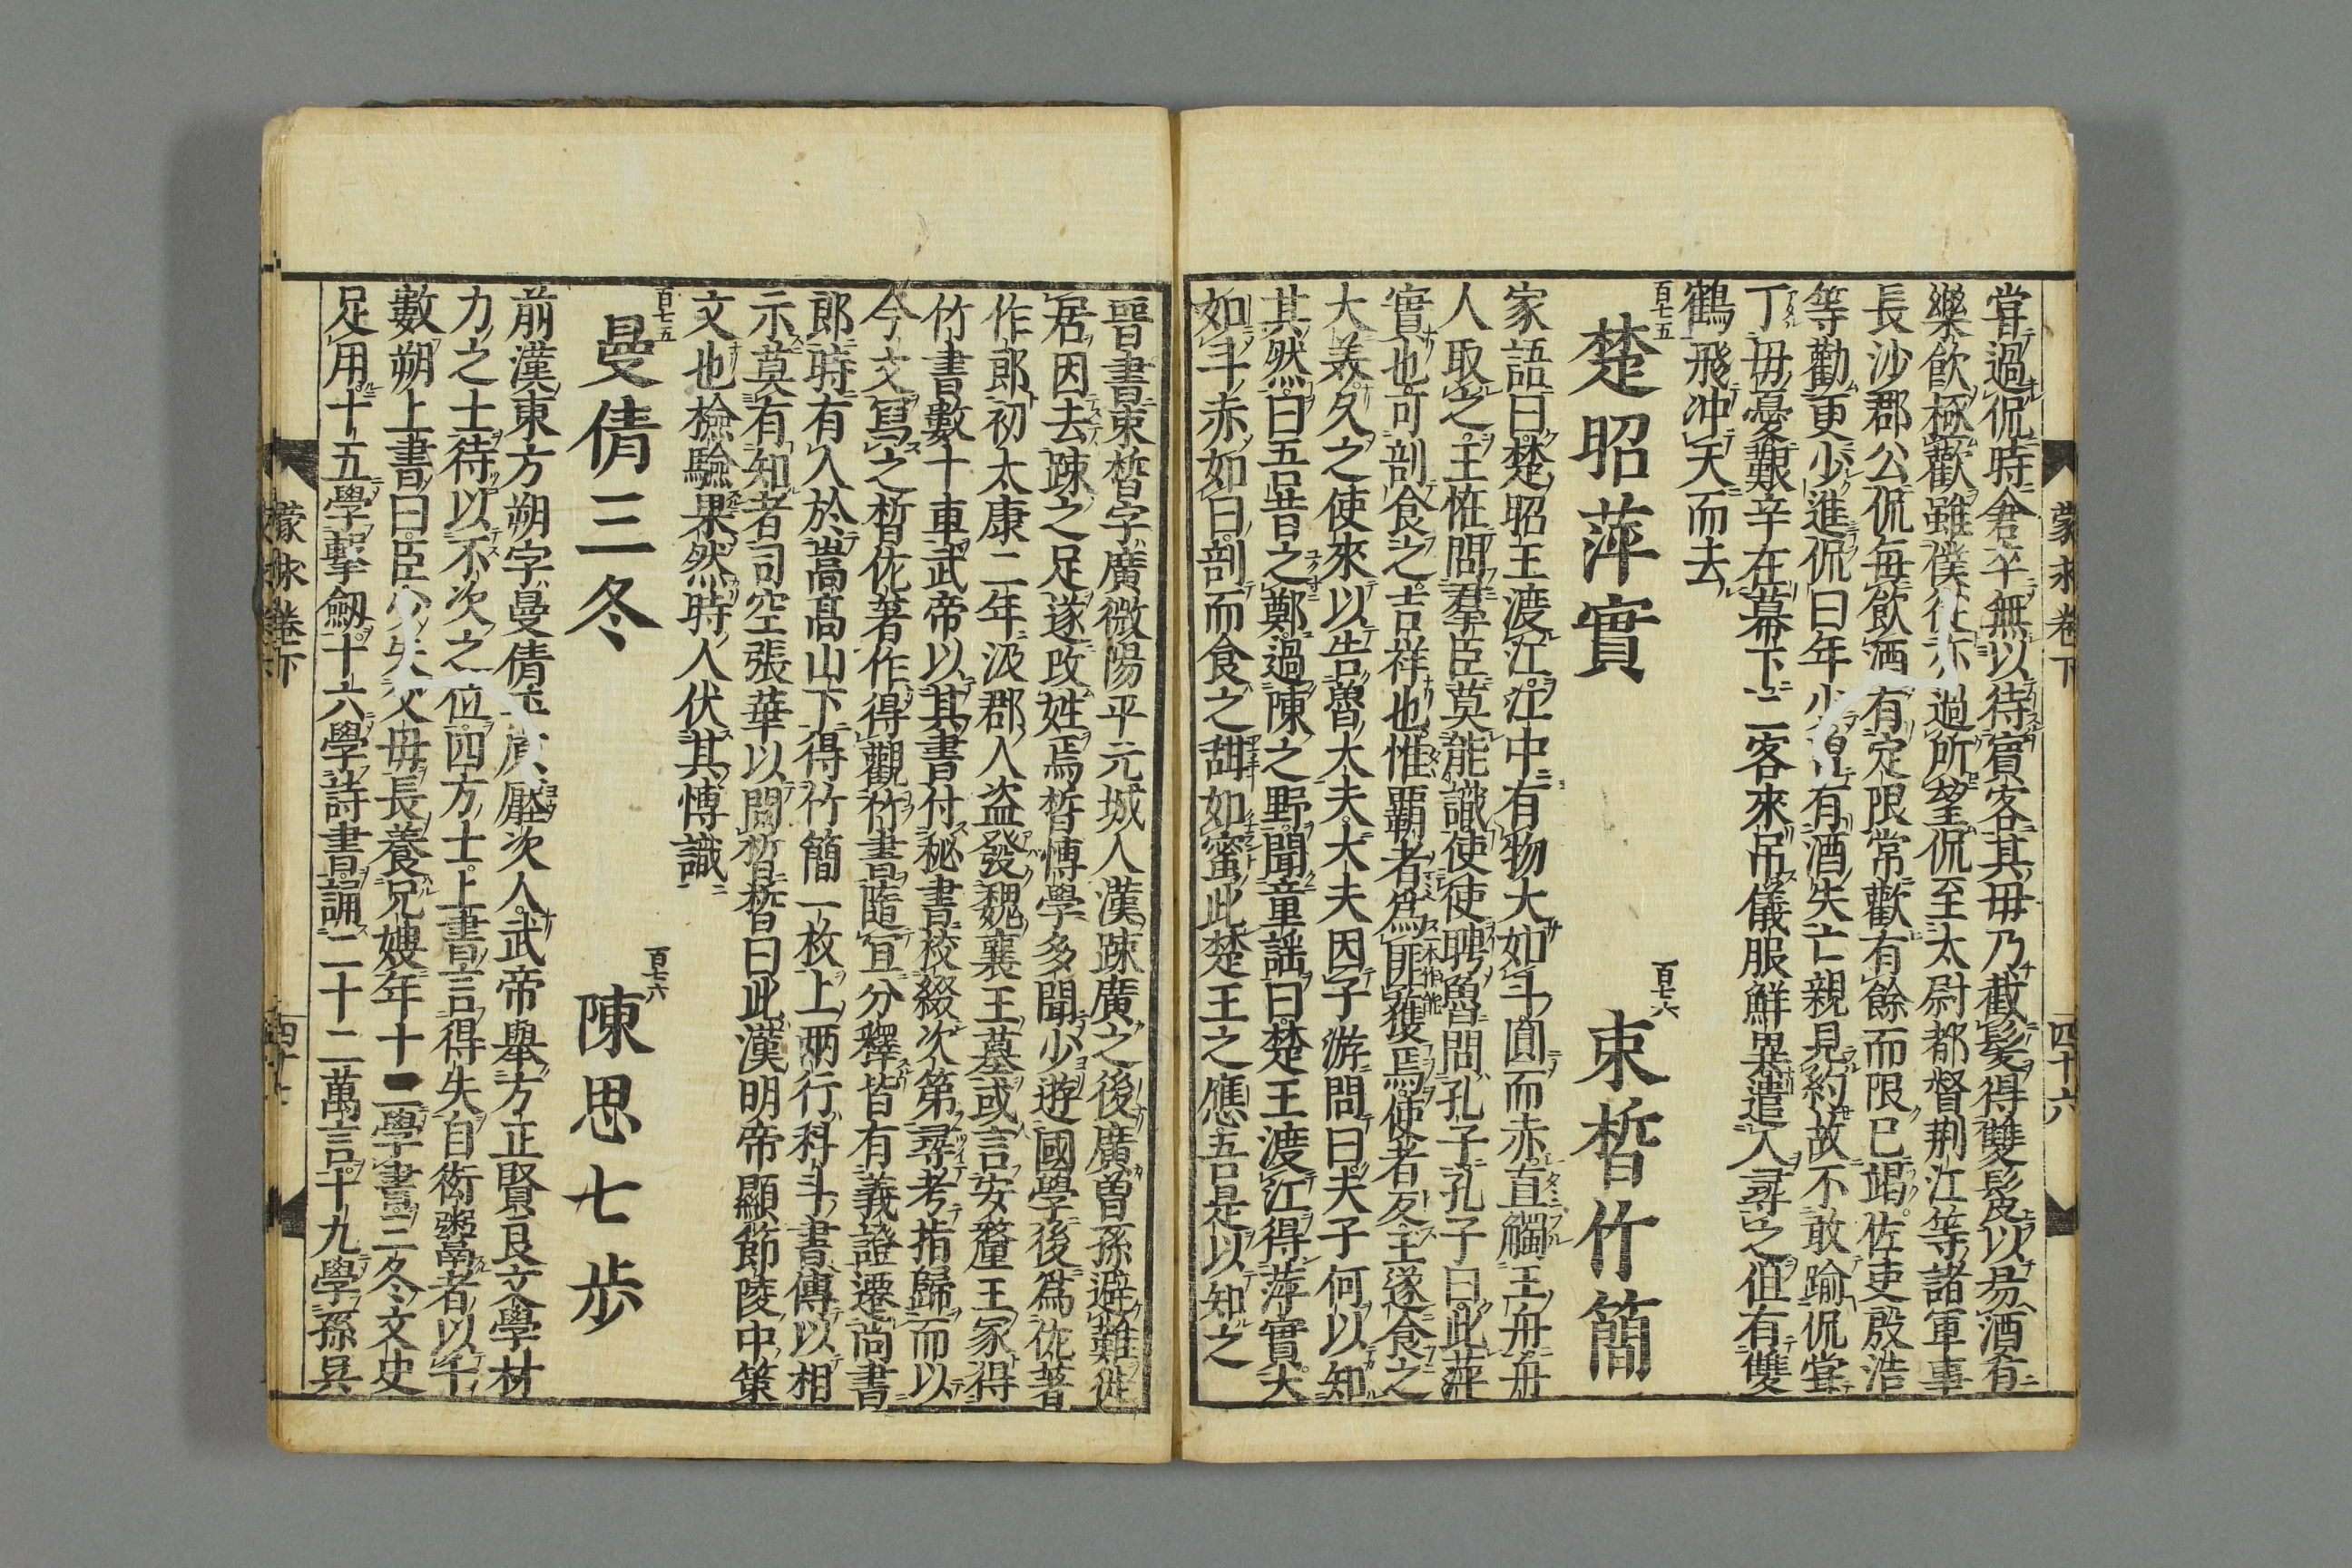 嘗過侃時倉卒無以待賓客其毋乃截髮得雙髲以易酒肴
樂飲極歡雖僕從亦過所望侃至太尉都督荆江等諸軍事
長沙郡公侃每飲酒有定限常歡有餘而限已竭佐吏殷浩
等勸更少進侃曰年少有酒失亡親見約故不敢踰侃嘗
丁毋憂艱辛在幕下二客來吊儀服鮮異遣人尋之但有雙
鶴飛冲天而去
百七五
楚昭萍實
百七六
束晳竹簡
家語曰楚昭王渡江江中有物大如斗圓而赤直觸王舟舟
人取之王恠問羣臣莫能識使使聘魯問孔子孔子曰此萍
實也可剖食之吉祥也惟覇者爲能獲焉使者反王遂食之
大美久之使來以告魯大夫大夫因子游問曰夫子何以知
其然曰吾昔之鄭過陳之野聞童謡曰楚王渡江得萍實大
如斗赤如日剖而食之甜如蜜此楚王之應吾是以知之
蒙求卷下
四十六
晉書束晳字廣微陽平元城人漢踈廣之後廣曽孫避難徙
居因去踈之足遂改姓焉晳博學多聞少遊國學後爲佐著
作郎初太康二年汲郡人盗發魏襄王墓或言安釐王冢得
竹書數十車武帝以其書付秘書校綴次第尋考指歸而以
今文寫之晳佐著作得觀竹書隨宜分釋皆有義證遷尚書
郎時有人於嵩髙山下得竹簡一枚上兩行科斗書傳以相
示莫有知者司空張華以問晳晳曰此漢明帝顯節陵中策
文也檢驗果然時人伏其博識
百七五
曼倩三冬
百七六
陳思七歩
前漢東方朔字曼倩平原厭次人武帝舉方正賢良文學材
力之士待以不次之位四方士上書言得失自衒鬻者以千
數朔上書曰臣少失父毋長養兄嫂年十二學書三冬文史
足用十五學擊劔十六學詩書誦二十二萬言十九學孫吳
蒙求卷下
四十七